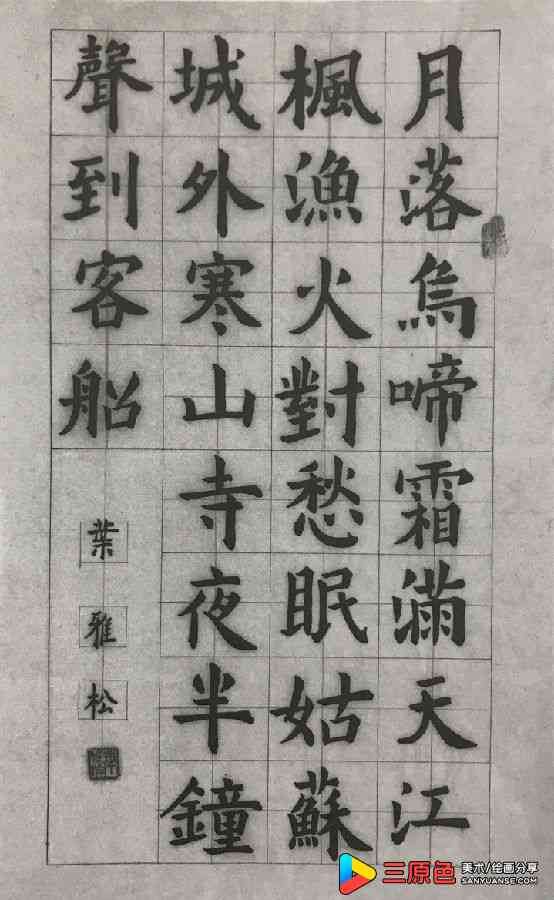 月落烏啼霜滿天江
楓漁火對愁眠姑蘇
城外寒山寺夜半鐘
聲到客船
葉雅松
三原色 美术/绘画分享
SANYUANSE.COM